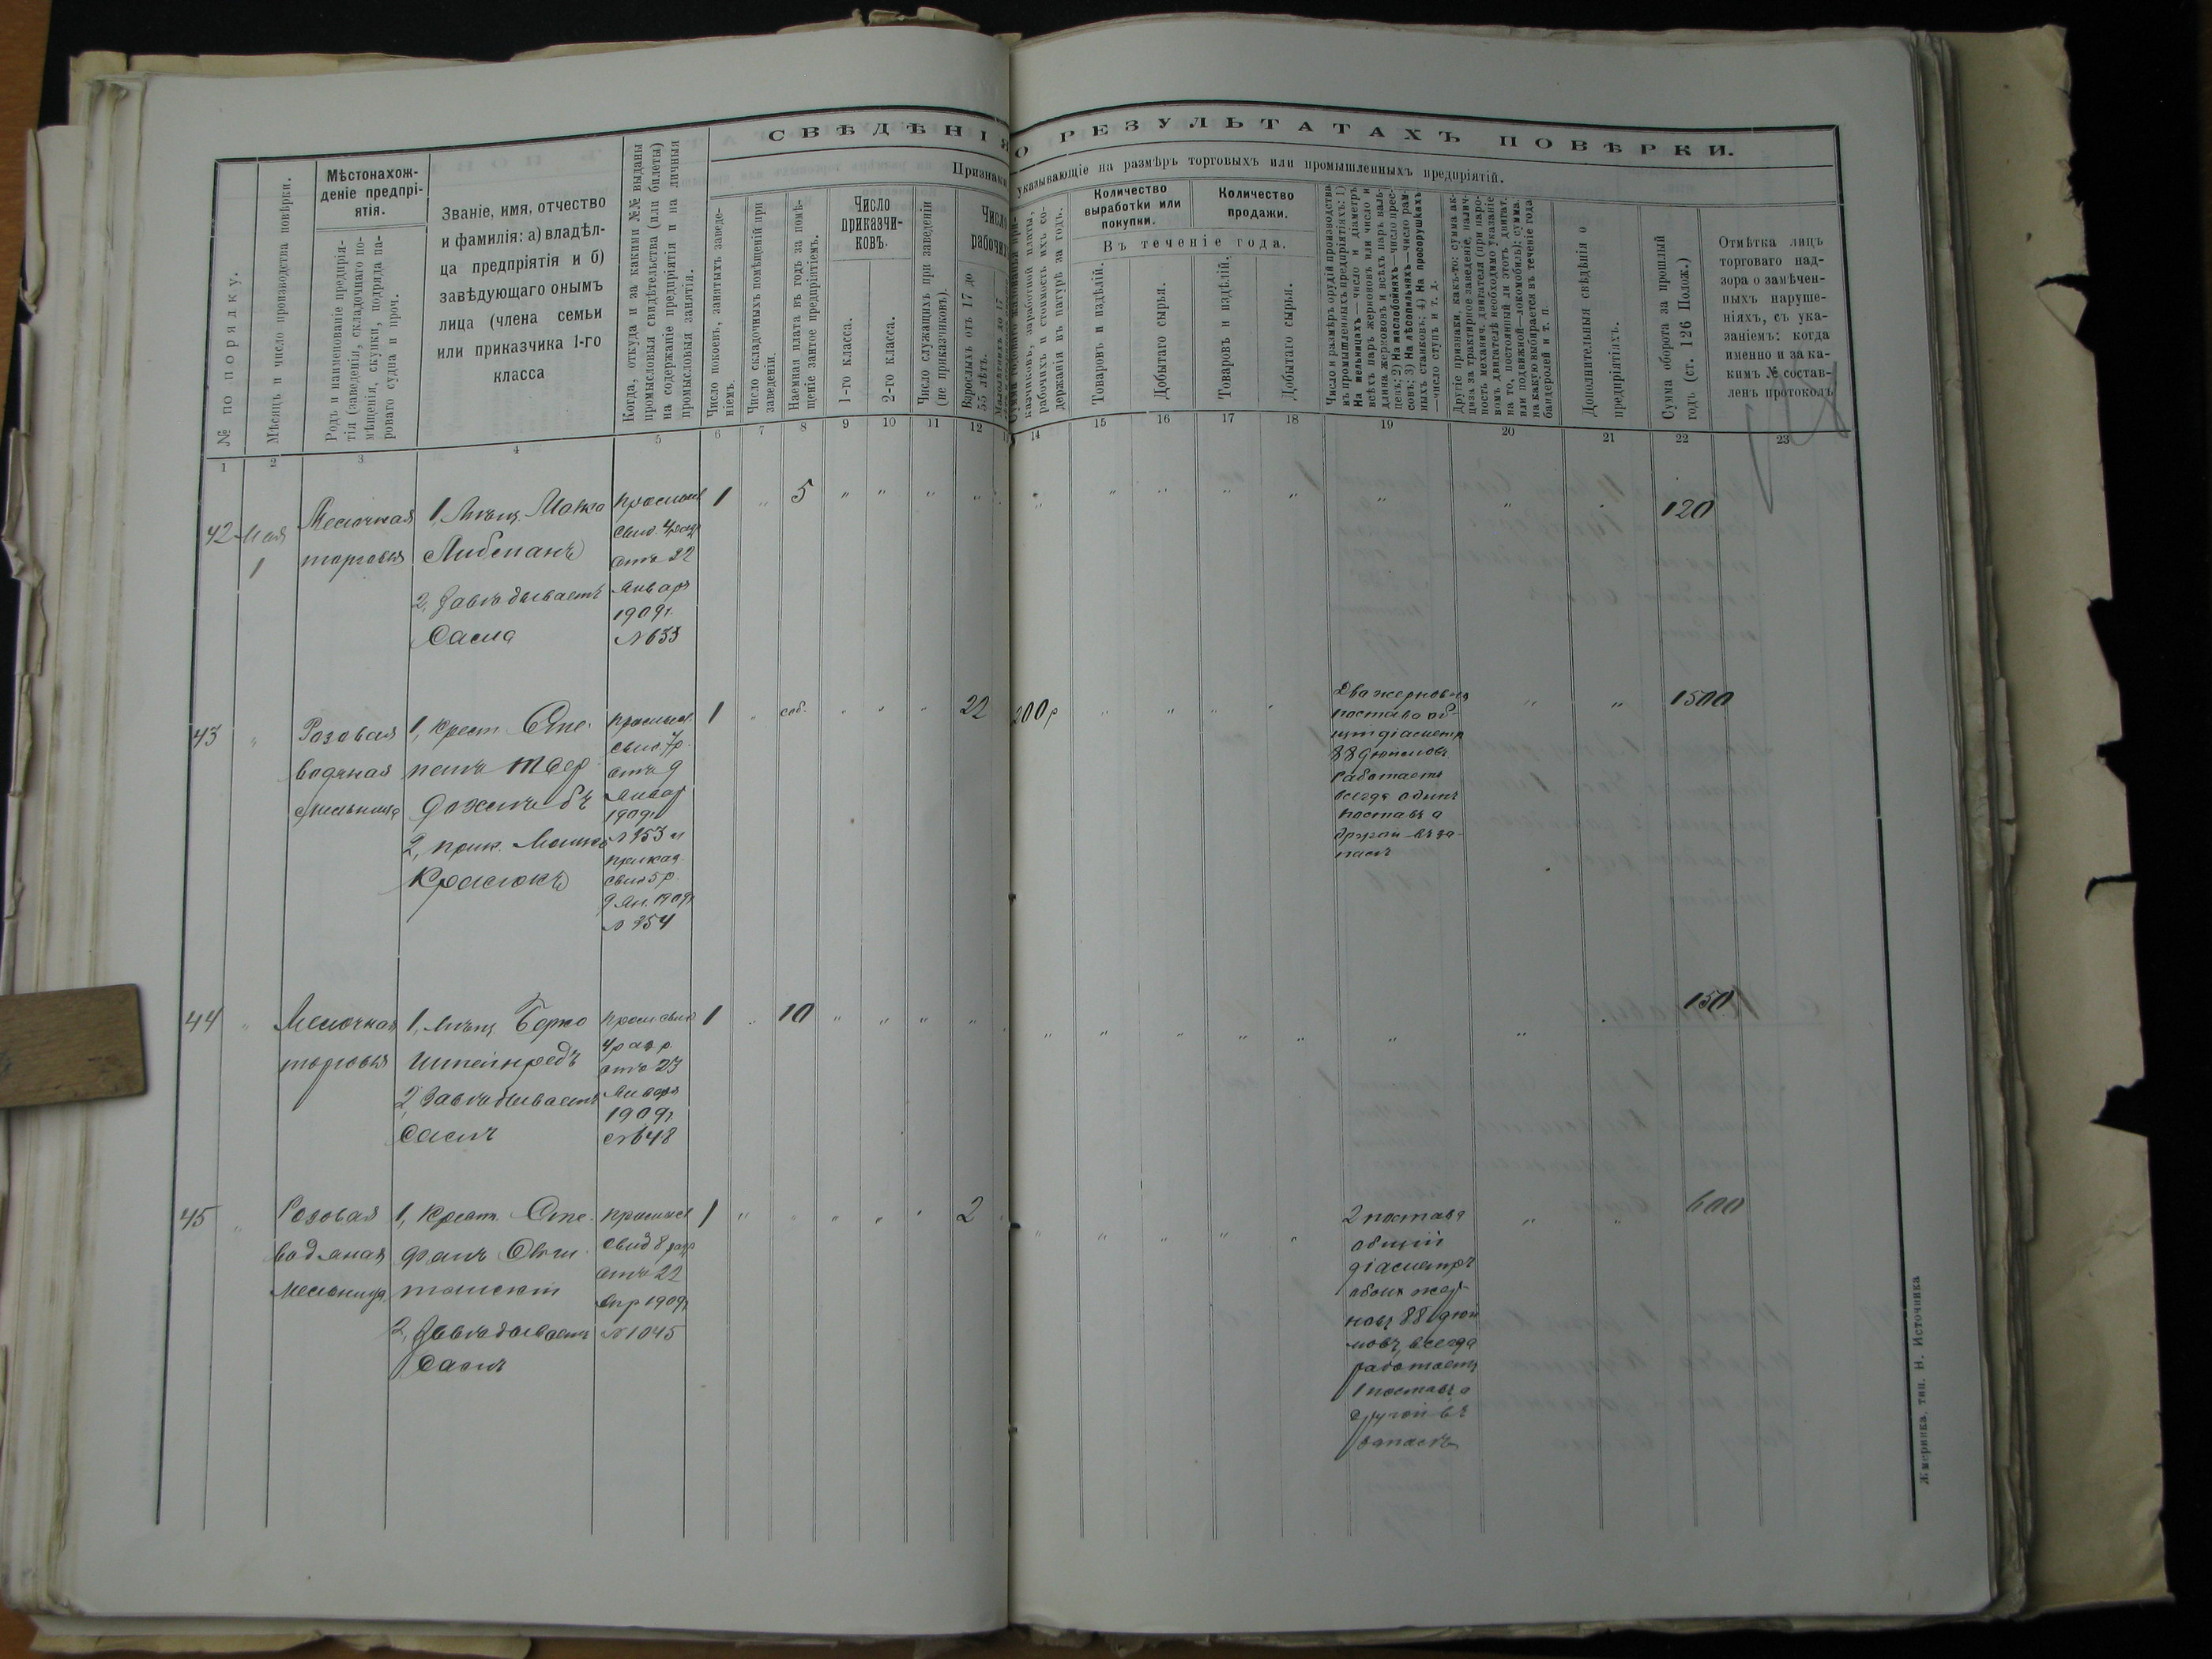 СВѢДѢНІЯ О РЕЗУЛЬТАТАХЪ ПОВѢРКИ.
Признаки, указывающіе на размѣръ торговыхъ или промышленныхъ предпріятій.
№ по порядку.
Мѣсяцъ и число производства повѣрки.
Мѣстонахож-
деніе предпрі-
ятія.
Родъ и наименованіе предпрія-
тія (заведенія, складочнаго по-
мѣщенія, скупки, подряда па-
роваго судна и проч.
Званіе, имя, отчество
и фамилія: а) владѣл-
ца предпріятія и б)
завѣдующаго онымъ
лица (члена семьи
или приказчика 1-го
класса
Когда, откуда и за какими №№ выданы
промысловыя свидѣтельства (или билеты)
на содержаніе предпріятія и на личныя
промысловыя занятія.
Число покоевъ, занятыхъ заведе-
ніемъ.
Число складочныхъ помѣщеній при
заведеніи.
Наемная плата въ годъ за помѣ-
щеніе занятое предпріятіемъ.
Число
приказчи-
ковъ.
1-го класса.
2-го класса.
Число служащихъ при заведеніи
(не приказчиковъ).
Число
рабочихъ
Взрослыхъ отъ 17 до
55 лѣтъ.
казчиковъ, заработной платы,
рабочихъ и стоимость ихъ со-
держанія въ натурѣ за годъ.
Количество
выработки или
покупки.
Количество
продажи.
Въ теченіе года.
Товаровъ и издѣлій.
Добытаго сырья.
Товаровъ и издѣлій.
Добытаго сырья.
Число и размѣръ орудій производства
въ промышленныхъ предпріятіяхъ: 1)
На мельницахъ—число и діаметръ
всѣхъ паръ жернововъ или число и
длина жернововъ и всѣхъ паръ валь-
цевъ; 2) На маслобойняхъ—число прес-
совъ; 3) На лѣсопильняхъ—число рам-
ныхъ станковъ; 4) На просорушкахъ
—число ступъ и т. д.
Другіе признаки, какъ-то: сумма ак-
циза за трактирное заведеніе, налич-
ность механич. двигателя (при паро-
вомъ двигателѣ необходимо указаніе
на то, постоянный ли этотъ двигат.
или подвижной—локомобиль); сумма,
на какую выбирается въ теченіе года
бандеролей и т. п.
Дополнительныя свѣдѣнія о
предпріятіяхъ.
Сумма оборота за прошлый
годъ (ст. 126 Полож.)
Отмѣтка лицъ
торговаго над-
зора о замѣчен-
ныхъ наруше-
ніяхъ, съ ука-
заніемъ: когда
именно и за ка-
кимъ № состав-
ленъ протоколъ
1 2 3 4 5 6 7 8 9 10 11 12 14 15 16 17 18 19 20 21 22 23
42 Мая
1
Мелочная
торговля
1, Мѣщ. Мовко
Либманъ
2, Завѣдываетъ
Сама
Промысл
свид. 4 разр
отъ 22
Января
1909 г.
№ 633
1 " 5 " " " "
" " " " " " " 120
43 "
Разовая
водяная
мельница
1, Крест. Сте-
панъ
2, прик. Мошко
Красюкъ
Промысл.
свид. 7 р.
отъ 9
Январ
1909 г
№ 253 и
приказ.
свид 5 р.
9 Ян. 1909 г
№ 254
1 " соб. " " " 22
200 р " " " "
Два жерновыхъ
постава об-
щій діаметр
88 дюймовъ
работаетъ
всегда одинъ
поставъ а
другой въ за-
пасѣ
" " 1500
44 "
Мелочная
торговля
1, Мѣщ. Берко
Штейнредъ
2, Завѣдываетъ
самъ
Пром свид
4 разр.
отъ 23
Января
1909 г
№ 648
1 " 10 " " " "
" " " " " " " 150
45 "
Розовая
водяная
мельница
1, Крест. Сте-
фанъ
2, Завѣдываетъ
самъ
Промысл
свид 8 разр
отъ 22
Апр 1909 г
№ 1045
1 " " " " 2
" " " " "
2 постава
общій
діаметръ
обоих жер-
новъ 88 дюй
мовъ, всегда
работаетъ
1 поставъ а
другой въ
запасѣ
" " 600
Жмеринка, тип. Н. Источника